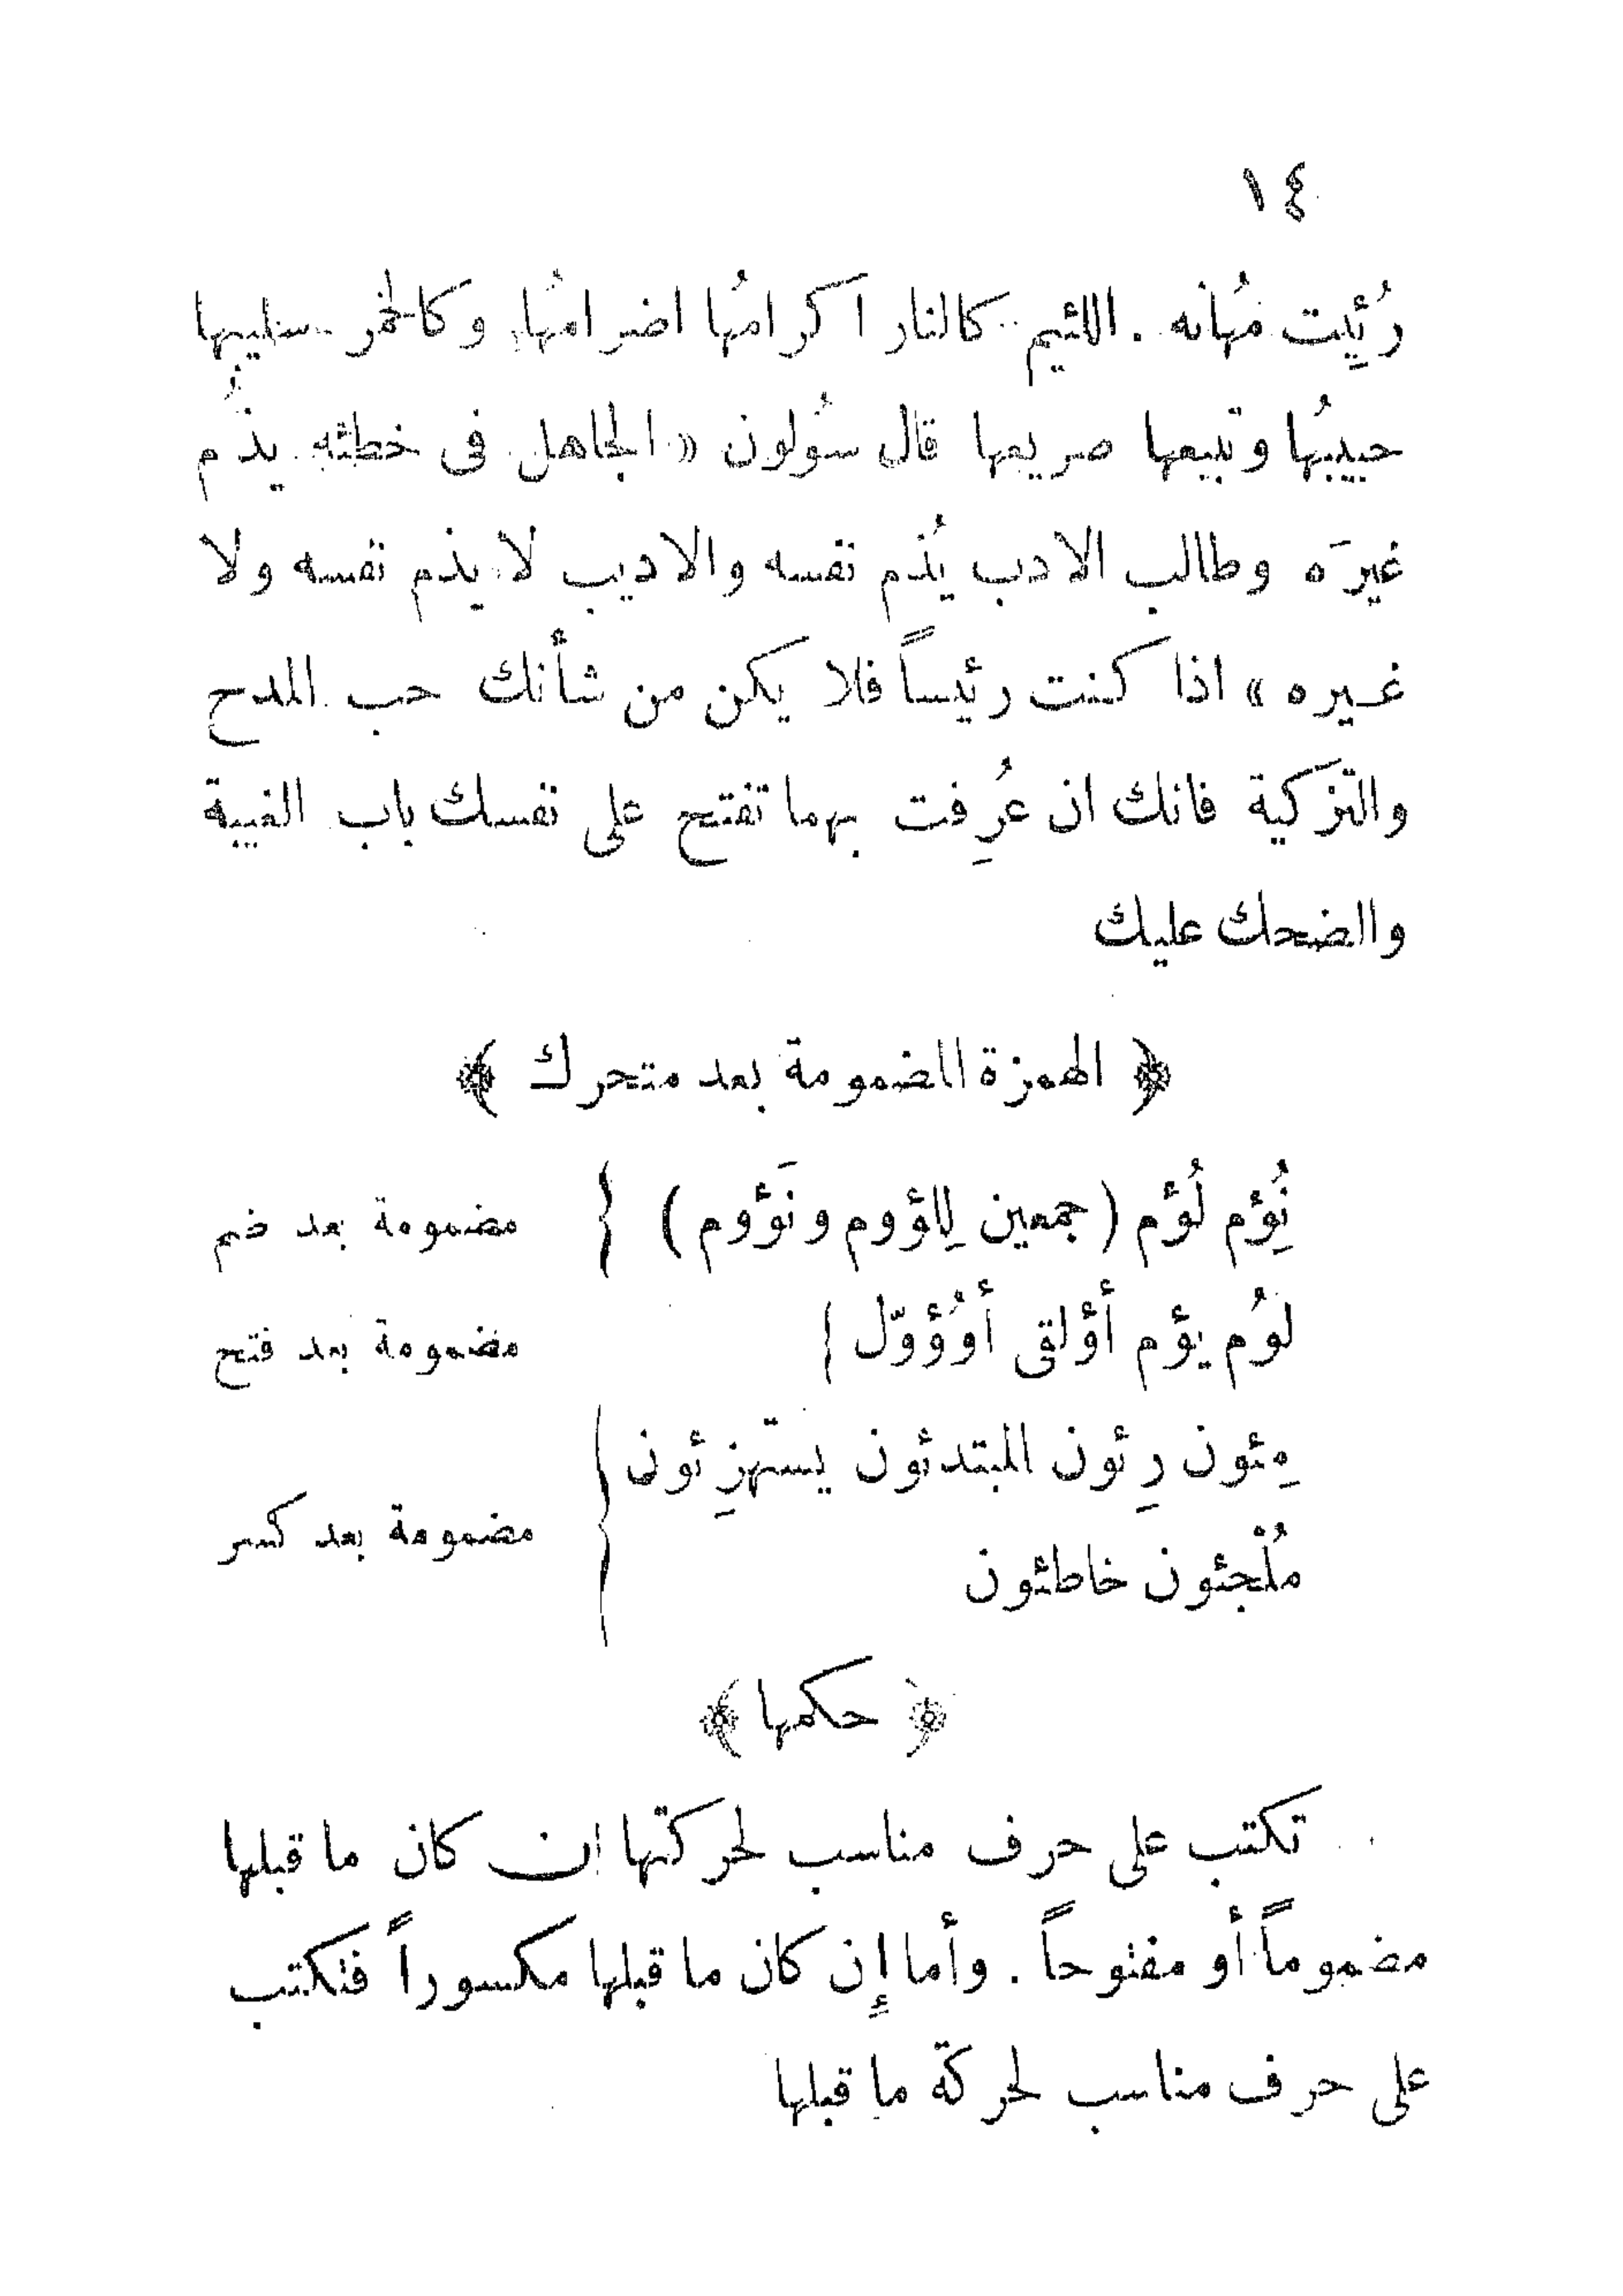 ١٤
رُئِيت مُهانه . اللئيم كالنار اكرامُها اضرامُها وكالخمر سليبها
حبيبُها وتبيعها صريعها قال سُولون « الجاهل فى خطئه يذُم
غيرَه وطالب الادب يُذم نفسه والاديب لا يذم نفسه ولا
غيره » اذا كنت رئيساً فلا يكن من شأنك حب المدح
والتزَكية فانك ان عُرِفت بهما تفتح على نفسك باب الغيبة
والضحك عليك
﴿ الهمزة المضمومة بعد متحرك ﴾
نُؤم لُؤم ( جمعين لِلؤوم ونَؤوم ) } مضمومة بعد ضم
لؤُم يؤم أؤلقى أوُؤوّل } مضمومة بعد فتح
مِئون رِئون المبتدئون يستهزِئون
مُلْجئون خاطئون } مضمومة بعد كسر
﴿ حكمها ﴾
تكتب على حرف مناسب لحركتها ان كان ما قبلها
مضموماً أو مفتوحاً . وأما إن كان ما قبلها مكسوراً فتكتب
على حرف مناسب لحركة ما قبلها